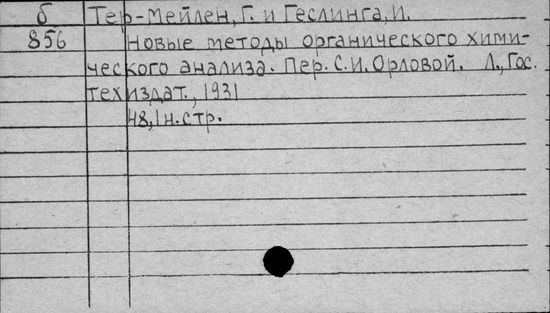 б Тер-Мейлен, Г. и Геслинга, И.
856 Новые методы органического хими-
ческого анализа. Пер. С.И. Орловой. Л., Гос.
техиздат., 1931
48, 1 н. стр.